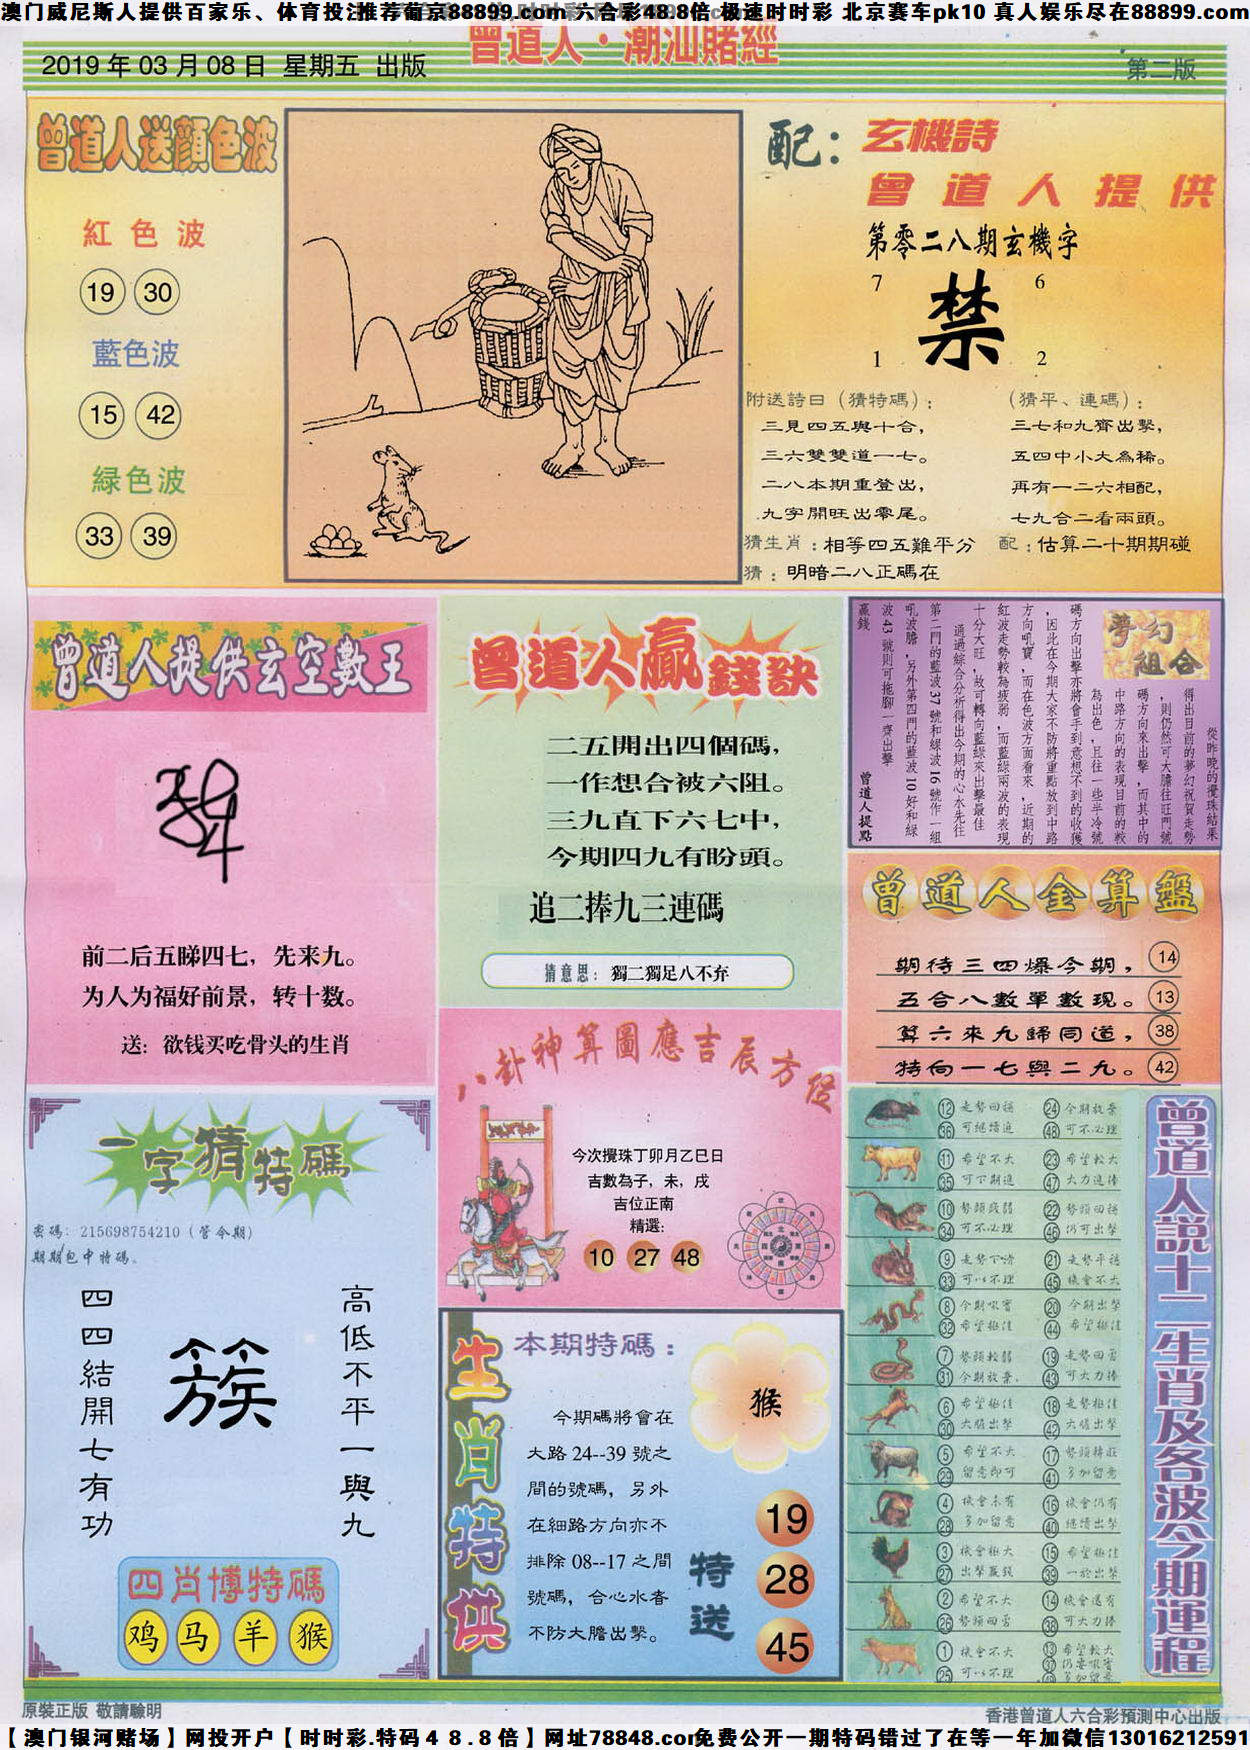 澳门威尼斯人提供百家乐、体育投注推荐葡京88899.com 六合彩48.8倍 极速时时彩 北京赛车pk10 真人娱乐尽在88899.com
曾道人·潮汕賭經
2019年03月08日 星期五 出版
第二版
曾道人送顏色波
紅色波
19 30
藍色波
15 42
緑色波
33 39
配：玄機詩
曾道人提供
第零二八期玄機字
7 6
禁
1 2
附送詩曰（猜特碼）：
三見四五與十合，
三六雙雙道一七。
二八本期重登出，
九字開旺出零尾。
（猜平、連碼）：
三七和九齊出擊，
五四中小大為稀。
再有一二六相配，
七九合二看兩頭。
猜生肖：相等四五難平分
配：估算二十期期碰
猜：明暗二八正碼在
曾道人提供玄空數王
前二后五睇四七，先来九。
为人为福好前景，转十数。
送：欲钱买吃骨头的生肖
曾道人贏錢訣
二五開出四個碼，
一作想合被六阻。
三九直下六七中，
今期四九有盼頭。
追二捧九三連碼
猜意思：獨二獨足八不弃
夢幻組合
從昨晚的攪珠結果
得出目前的夢幻祝賀走勢
，則仍然可大膽往旺門號
碼方向來出擊，而其中的
中路方向的表現目前的較
為出色，且往一些半冷號
碼方向出擊亦將會手到意想不到的收獲
，因此在今期大家不防將重點放到中路
方向吼寶，而在色波方面看來，近期的
紅波走勢較為疲弱，而藍緑兩波的表現
十分大旺，故可轉向藍緑來出擊最佳
通過綜合分析得出今期的心水先往
第二門的藍波37號和緑波16號作一組
吼波膽，另外第四門的藍波10好和緑
波43號則可拖腳一齊出擊
贏錢
曾道人提點
曾道人金算盤
期待三四爆今期， 14
五合八數單數現。 13
算六來九歸同道， 38
特向一七與二九。 42
八卦神算圖應吉辰方位
今次攪珠丁卯月乙巳日
吉數為子，未，戌
吉位正南
精選：
10 27 48
一字猜特碼
密碼：215698754210（管今期）
期期包中特碼。
四四結開七有功
簇
高低不平一與九
四肖博特碼
鸡 马 羊 猴
生肖特供
本期特碼：
猴
今期碼將會在
大路24--39號之
間的號碼，另外
在細路方向亦不
排除08--17之間
號碼，合心水者
不防大膽出擊。
特送
19
28
45
曾道人説十二生肖及各波今期運程
12 走勢回穩 24 今期放棄
36 可繼續追 48 可不必理
11 希望不大 23 希望較大
35 可下期追 47 大力追捧
10 勢頭疲弱 22 勢頭回穩
34 可不必理 46 仍可出擊
9 走勢下滑 21 走勢平穩
33 可以不理 45 機會不大
8 今期吼寶 20 今期出擊
32 希望極佳 44 希望極佳
7 勢頭較弱 19 走勢回雲
31 今期放棄， 43 可大力捧
6 希望極佳 18 走勢極佳
30 大膽出擊 42 大膽出擊
5 希望不大 17 勢頭轉旺
29 留意即可 41 多加留意
4 機會未有 16 機會仍有
28 多加留意 40 繼續出擊
3 機會極大 15 希望極佳
27 出擊贏錢 39 一於出擊
2 希望不大 14 機會還有
26 勢頭回雲 38 可大力捧
1 機會不大 13 希望較大
25 可以不理 37 仍要吼實
49 多加留意
原裝正版 敬請驗明
香港曾道人六合彩預測中心出版
【澳门银河赌场】网投开户【时时彩.特码48.8倍】网址78848.com免费公开一期特码错过了在等一年加微信13016212591